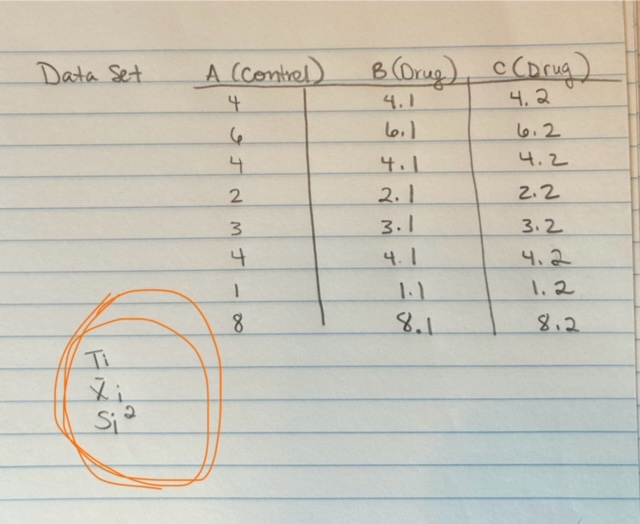 Data Set A (Control) B (Drug) C (Drug)
4 4.1 4.2
6 6.1 6.2
4 4.1 4.2
2 2.1 2.2
3 3.1 3.2
4 4.1 4.2
1 1.1 1.2
8 8.1 8.2
Ti
X̄i
Si²